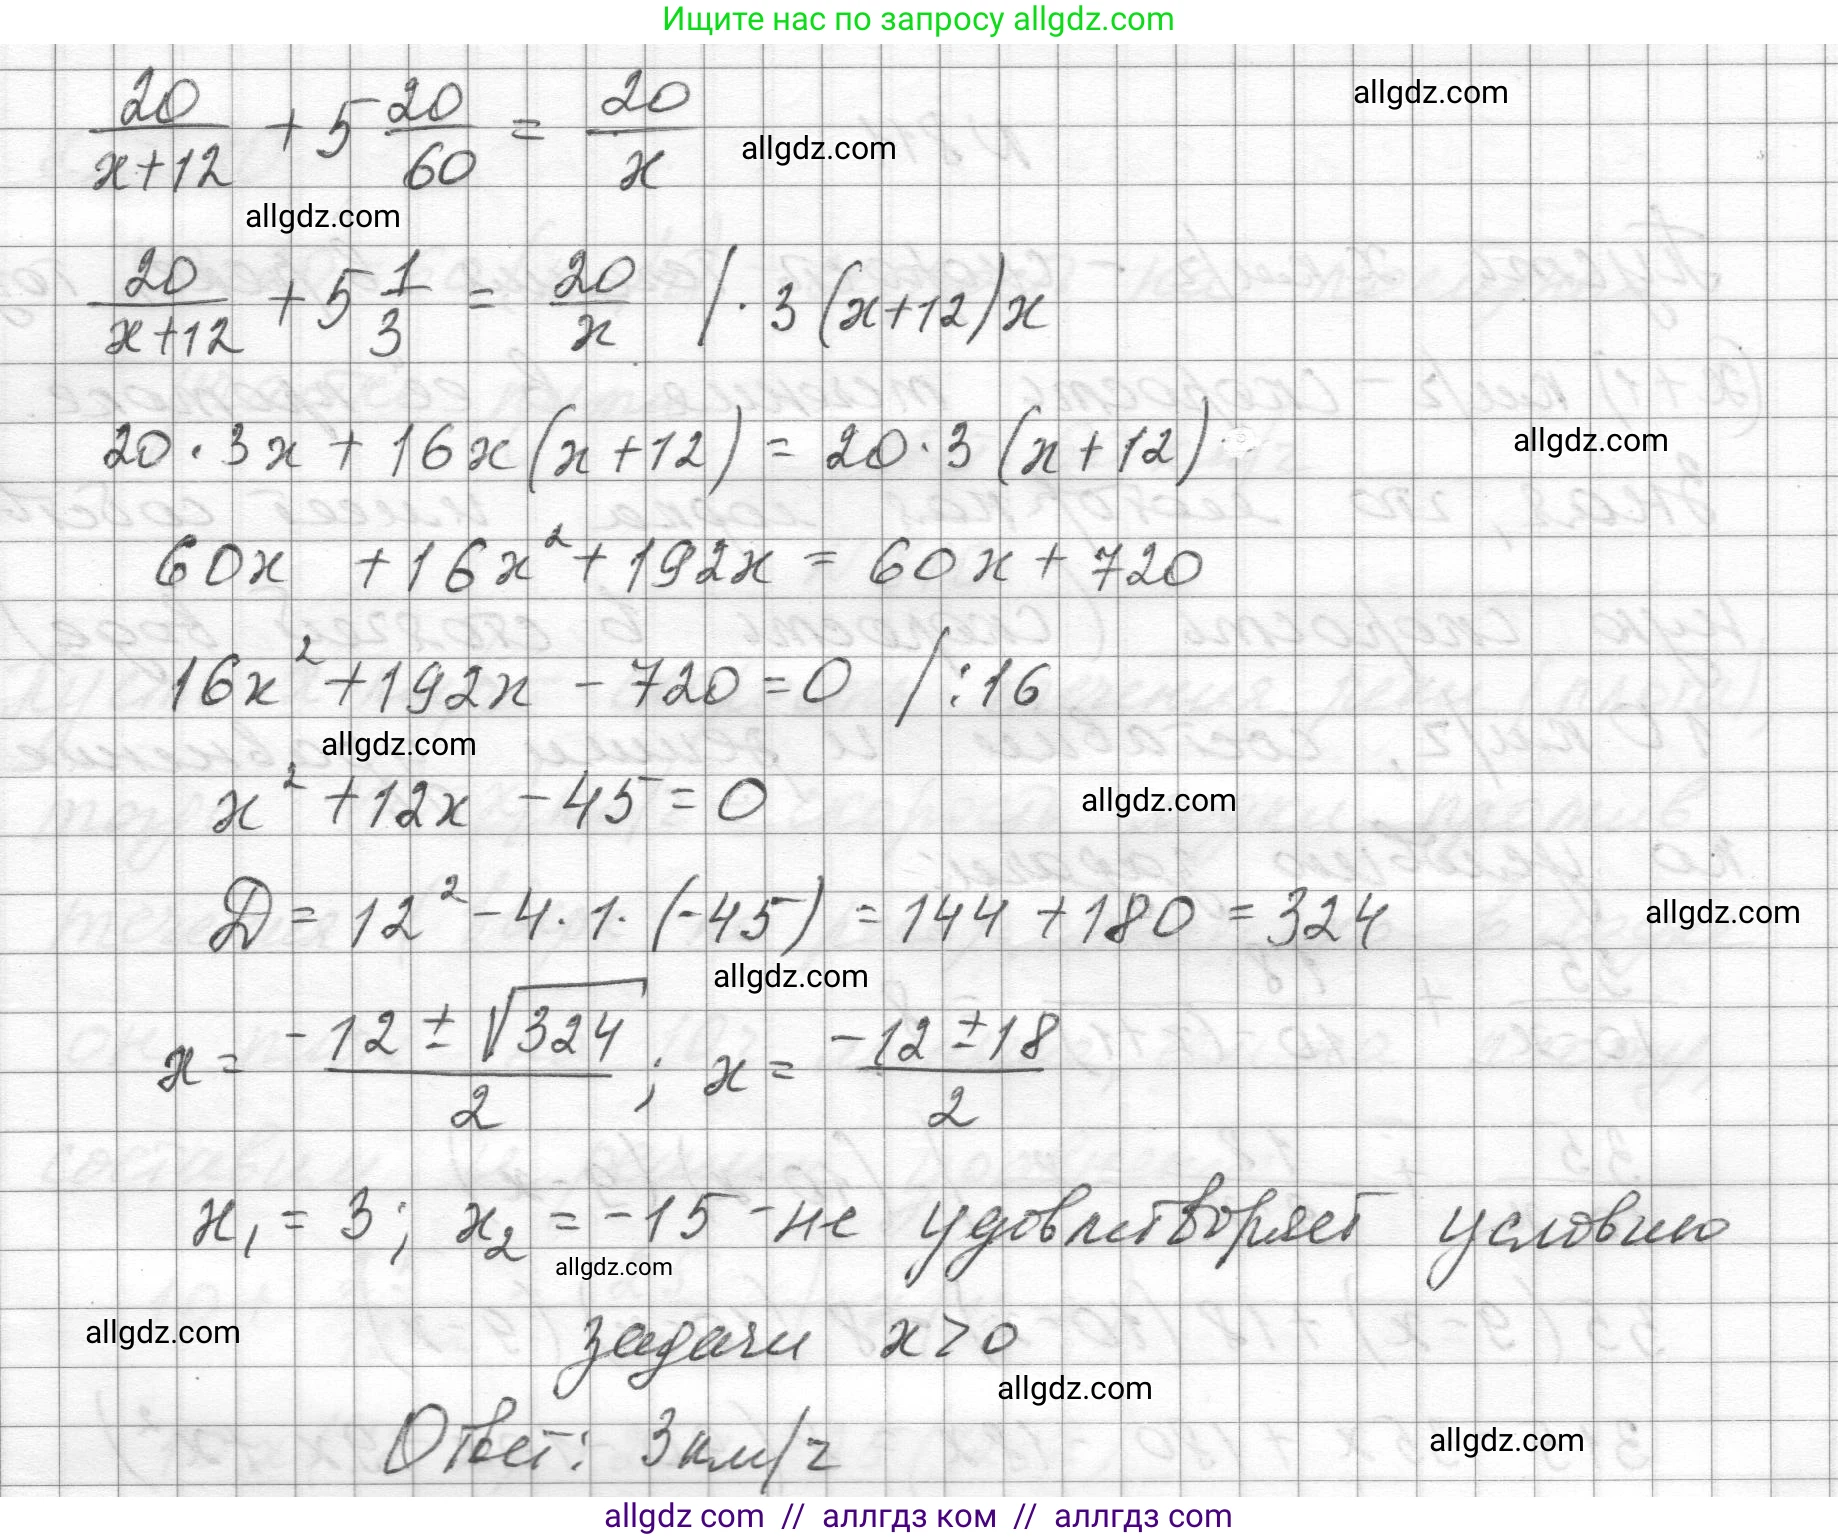 Ищите нас по запросу allgdz.com
20/(x+12) + 5 20/60 = 20/x
allgdz.com
allgdz.com
allgdz.com
20/(x+12) + 5 1/3 = 20/x / · 3(x+12)x
20 · 3x + 16x(x+12) = 20 · 3(x+12)
allgdz.com
60x + 16x² + 192x = 60x + 720
16x² + 192x - 720 = 0 / : 16
allgdz.com
x² + 12x - 45 = 0
allgdz.com
D = 12² - 4 · 1 · (-45) = 144 + 180 = 324
allgdz.com
allgdz.com
x = (-12 ± √324)/2 ; x = (-12 ± 18)/2
x₁ = 3; x₂ = -15 - не удовлетворяет условию
allgdz.com
allgdz.com
задачи x > 0
allgdz.com
Ответ: 3 км/ч
allgdz.com
allgdz com // аллгдз ком // аллгдз com